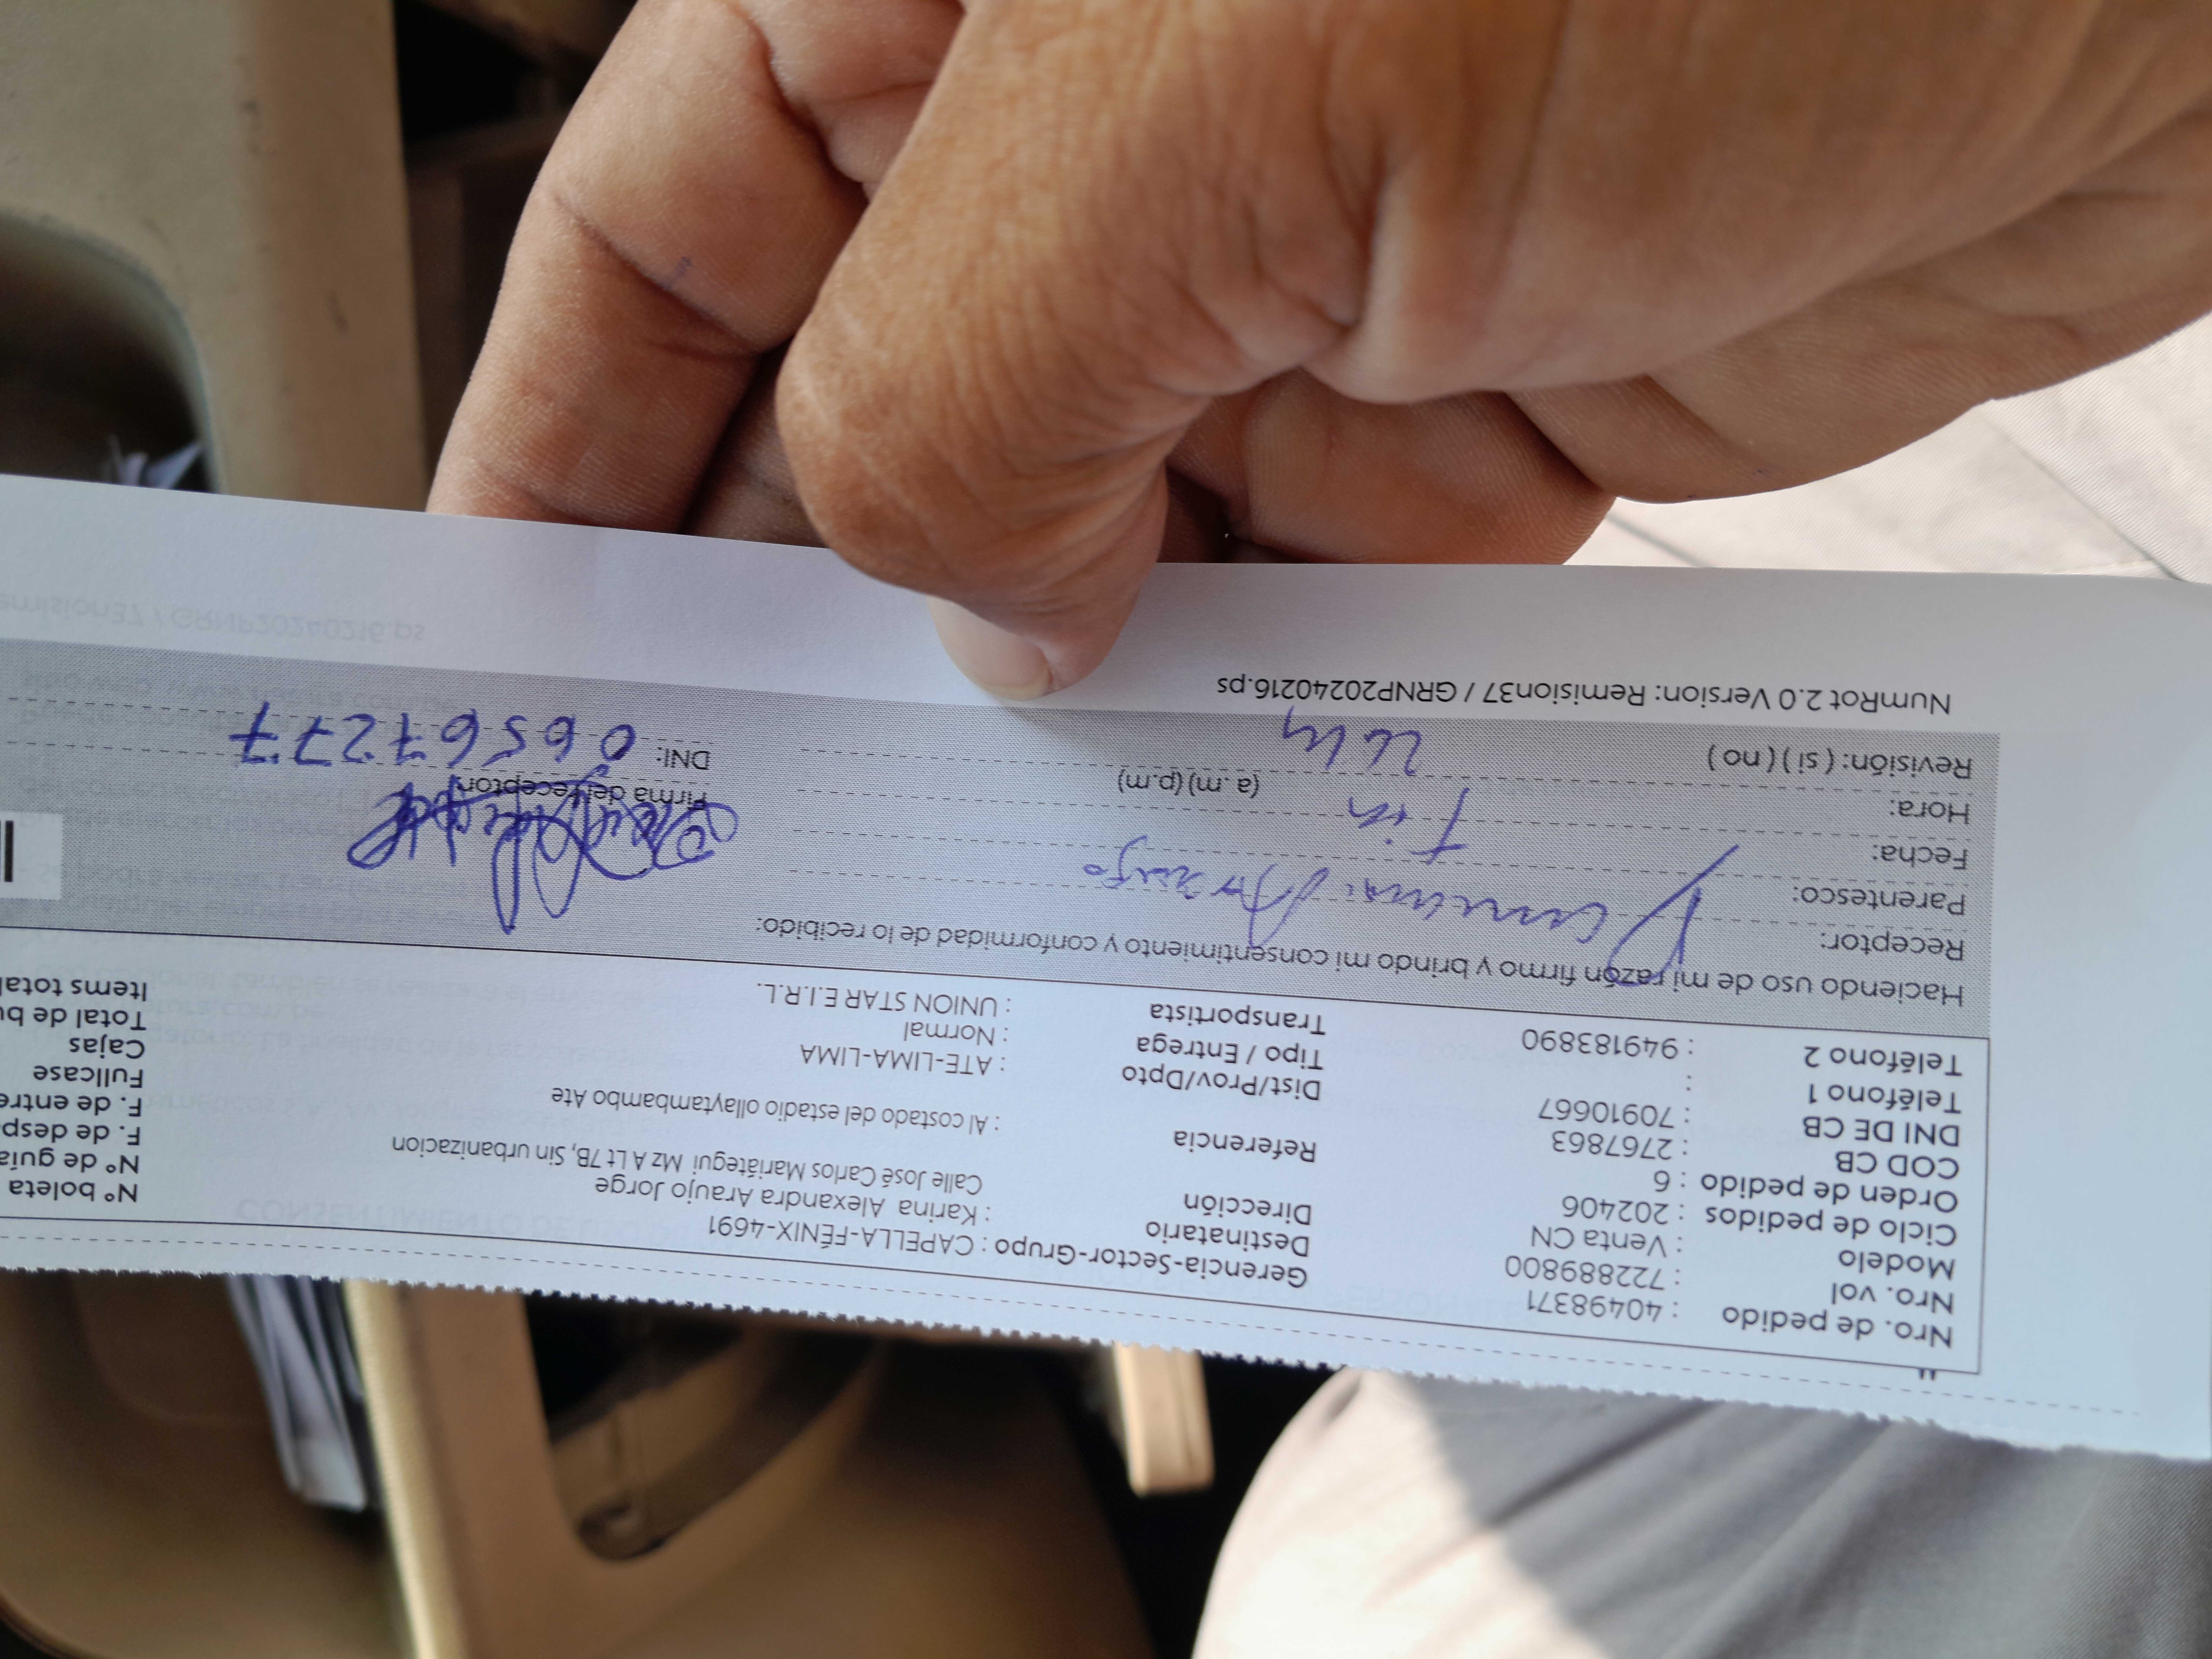 Nro. de pedido : 40498371
Nro. vol : 722889800
Modelo : Venta CN
Ciclo de pedidos : 202406
Orden de pedido : 6
COD CB : 2767863
DNI DE CB : 70910667
Teléfono 1 :
Teléfono 2 : 949183890
Gerencia-Sector-Grupo : CAPELLA-FÉNIX-4691
Destinatario : Karina Alexandra Araujo Jorge
Dirección Calle José Carlos Mariátegui Mz A Lt 7B, Sin urbanizacion
Referencia : Al costado del estadio ollaytambambo Ate
Dist/Prov/Dpto : ATE-LIMA-LIMA
Tipo / Entrega : Normal
Transportista : UNION STAR E.I.R.L.
N° boleta
N° de guía
F. de desp
F. de entre
Fullcase
Cajas
Total de bu
Items total
Haciendo uso de mi razón firmo y brindo mi consentimiento y conformidad de lo recibido:
Receptor: Araujo
Parentesco:
Fecha:
Hora: (a.m) (p.m)
Revisión: ( si ) ( no )
Firma del receptor
DNI: 06567277
NumRot 2.0 Version: Remision37 / GRNP20240216.ps